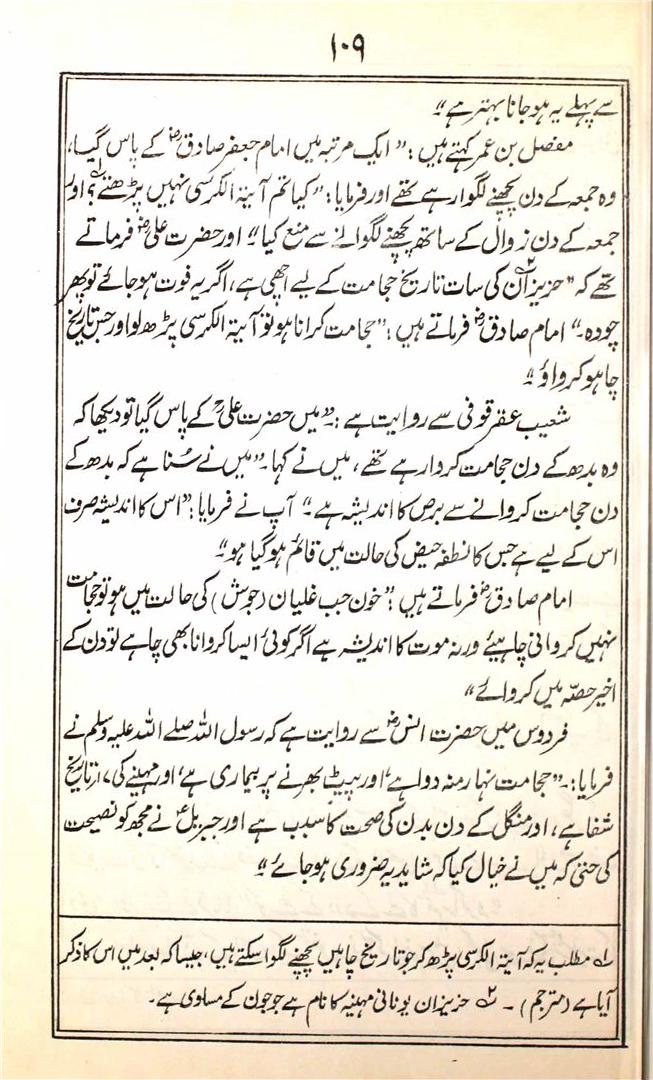 ۱۰۹
سے پہلے یہ ہو جانا بہتر ہے“
مفضل بن عمر کہتے ہیں: ”ایک مرتبہ میں امام جعفر صادقؓ کے پاس گیا،
وہ جمعہ کے دن پچھنے لگوا رہے تھے اور فرمایا: ”کیا تم آیۃ الکرسی نہیں پڑھتے؟ اور
جمعہ کے دن زوال کے ساتھ پچھنے لگوانے سے منع کیا“ اور حضرت علیؓ فرماتے
تھے کہ ”حزیران کی سات تاریخ حجامت کے لیے اچھی ہے، اگر یہ فوت ہو جائے تو پھر
چودہ۔“ امام صادقؓ فرماتے ہیں: ”حجامت کرانا ہو تو آیۃ الکرسی پڑھ لو اور جس تاریخ
چاہو کرواؤ“
شعیب عقرقوفی سے روایت ہے:۔ ”میں حضرت علیؒ کے پاس گیا تو دیکھا کہ
وہ بدھ کے دن حجامت کروا رہے تھے، میں نے کہا۔ ”میں نے سُنا ہے کہ بدھ کے
دن حجامت کروانے سے برص کا اندیشہ ہے۔“ آپ نے فرمایا: ”اس کا اندیشہ صرف
اس کے لیے ہے جس کا نطفہ حیض کی حالت میں قائم ہو گیا ہو“
امام صادقؓ فرماتے ہیں: ”خون جب غلیان (جوش) کی حالت میں ہو تو حجامت
نہیں کروانی چاہیئے ورنہ موت کا اندیشہ ہے اگر کوئی ایسا کروانا بھی چاہے تو دن کے
اخیر حصّہ میں کروائے“
فردوس میں حضرت انسؓ سے روایت ہے کہ رسول اللہ صلے اللہ علیہ وسلم نے
فرمایا:۔ ”حجامت نہار منہ دوا ہے، اور پیٹ بھرنے پر بیماری ہے، اور مہینے کی ۱۷ تاریخ
شفا ہے، اور منگل کے دن بدن کی صحت کا سبب ہے اور جبریلؑ نے مجھ کو نصیحت
کی حتیٰ کہ میں نے خیال کیا کہ شاید یہ ضروری ہو جائے“
۱؎ مطلب یہ کہ آیۃ الکرسی پڑھ کر جو تاریخ چاہیں پچھنے لگوا سکتے ہیں، جیسا کہ بعد میں اس کا ذکر
آیا ہے (مترجم)۔ ۲؎ حزیران یونانی مہینہ کا نام ہے جو جون کے مساوی ہے۔